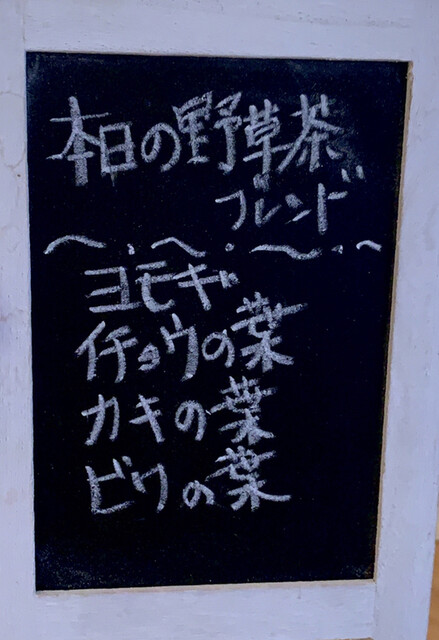 本日の野草茶
ブレンド
〜・〜・〜・〜
ヨモギ
イチョウの葉
カキの葉
ビワの葉